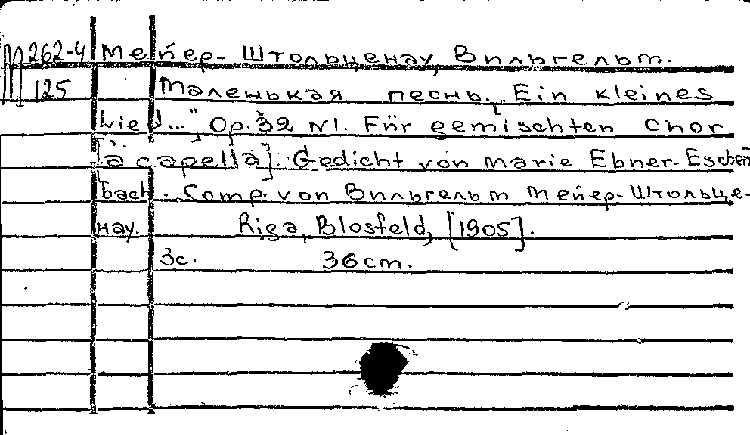 М 262-4 Мейер-Штольценау, Вильгельм.
125 Маленькая песнь. "Ein kleines
Lied..." Op. 32 N1. Für gemischten Chor
[a capella]. Gedicht von Marie Ebner-Eschen
bach. Comp. von Вильгельм Мейер-Штольце-
нау. Riga, Blosfeld, [1905].
3с. 36cm.